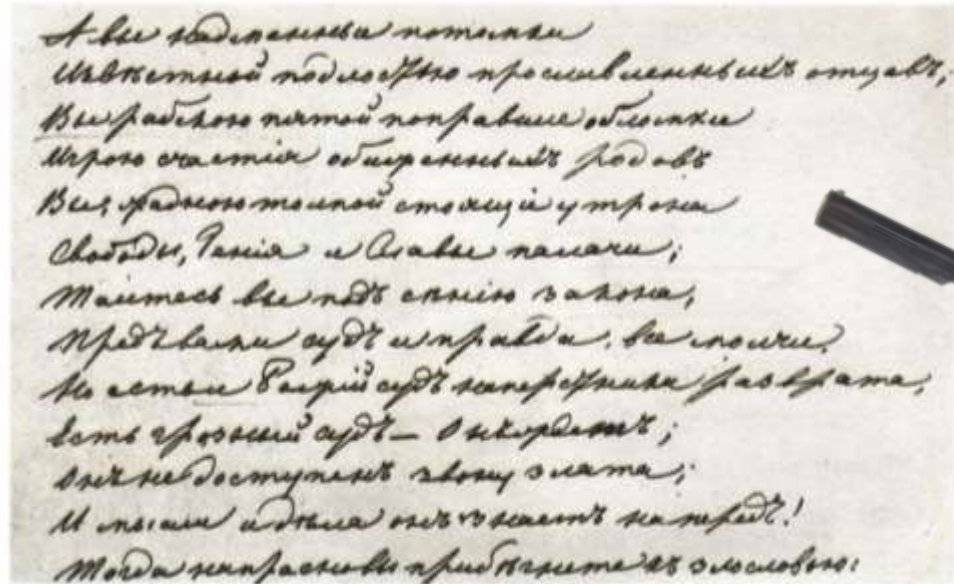 А вы надменныи потомки
Извѣстной подлостью прославленныхъ отцовъ,
Вы, рабскою пятой поправшие обломки
Игрою счастія обиженныхъ родовъ
Вы, жадною толпой стоящіи у трона
Свободы, Генія и Славы палачи;
Таитесь вы подъ сѣнію закона,
Предъ вами судъ и правда, все молчи.
Но есть и Божій судъ наперстники разврата,
Есть грозный судъ — Онъ ждетъ;
Онъ не доступенъ звону злата;
И мысли и дѣла онъ знаетъ напередъ!
Тогда напрасно вы прибѣгнете къ злословью: